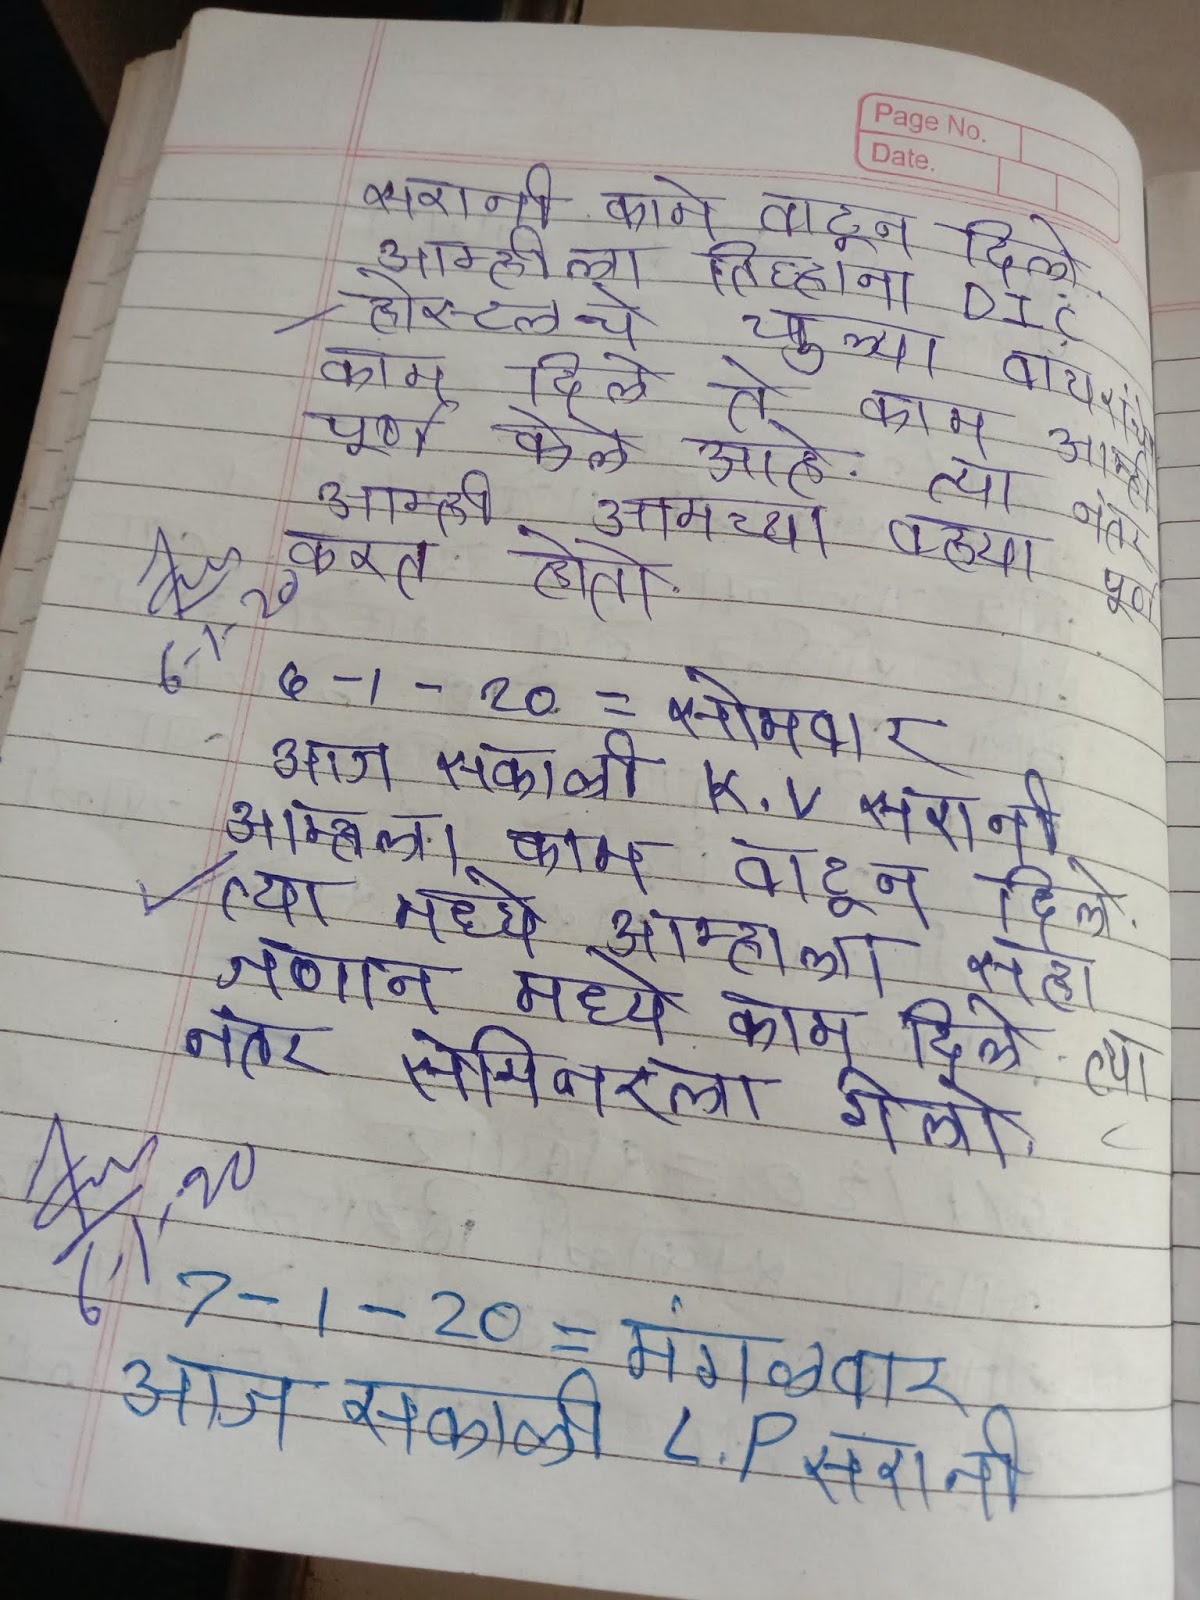 Page No.
Date.
सरानी कामे वाटून दिले.
आम्हीला तिघ्हाना DIC
होस्टलचे चुल्या वायरींगचे
काम दिले ते काम आम्ही
पूर्ण केले आहे. त्या नंतर
आम्ही आमच्या वह्या पूर्ण
करत होतो.
6-1-20
6-1-20 = सोमवार
आज सकाळी K.V सरानी
आम्हाला काम वाटून दिले.
त्या मध्ये आम्हाला सहा
जणान मध्ये काम दिले त्या
नंतर सेमिनारला गेलो.
6-1-20
7-1-20 = मंगळवार
आज सकाळी L.P सरानी